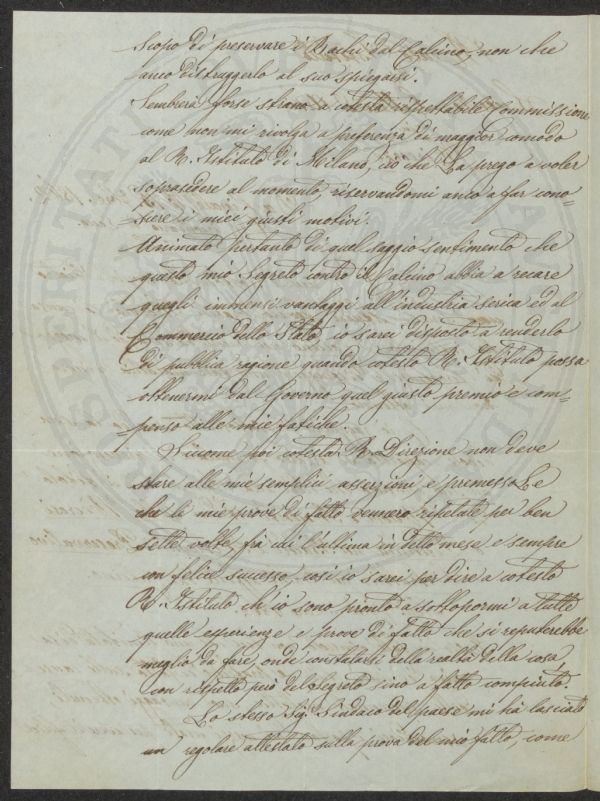 scopo di preservare i Bachi dal Calcino, non che
anco distruggerlo al suo spiegarsi.
Sembrerà forse strano a cotesta rispettabile Commissione
come non mi rivolga a preferenza di maggior comodo
al R. Istituto di Milano, ciò che La prego a voler
soprasedere al momento, riservandomi anco a far cono=
scere i miei giusti motivi.
Animato pertanto di quel saggio sentimento che
questo mio Segreto contro il Calcino abbia a recare
quegli immensi vantaggi all'industria serica ed al
Commercio dello Stato, io sarei disposto a renderlo
di pubblica ragione quando cotesto R. Istituto possa
ottenermi dal Governo quel giusto premio e com=
penso alle mie fatiche.
Siccome poi cotesta R. Direzione non deve
stare alle mie semplici asserzioni e premesso Le
che le mie prove di fatto vennero ripetute per ben
sette volte, fra cui l'ultima in detto mese e sempre
con felice successo, così io sarei per dire a cotesto
R. Istituto ch'io sono pronto a sottopormi a tutte
quelle esperienze e prove di fatto che si reputerebbe
meglio da fare, onde constatarsi della realtà della cosa,
con rispetto però del Segreto sino a fatto compiuto.
Lo stesso Sig. Sindaco del paese mi ha lasciato
un regolare attestato sulla prova del mio fatto, come